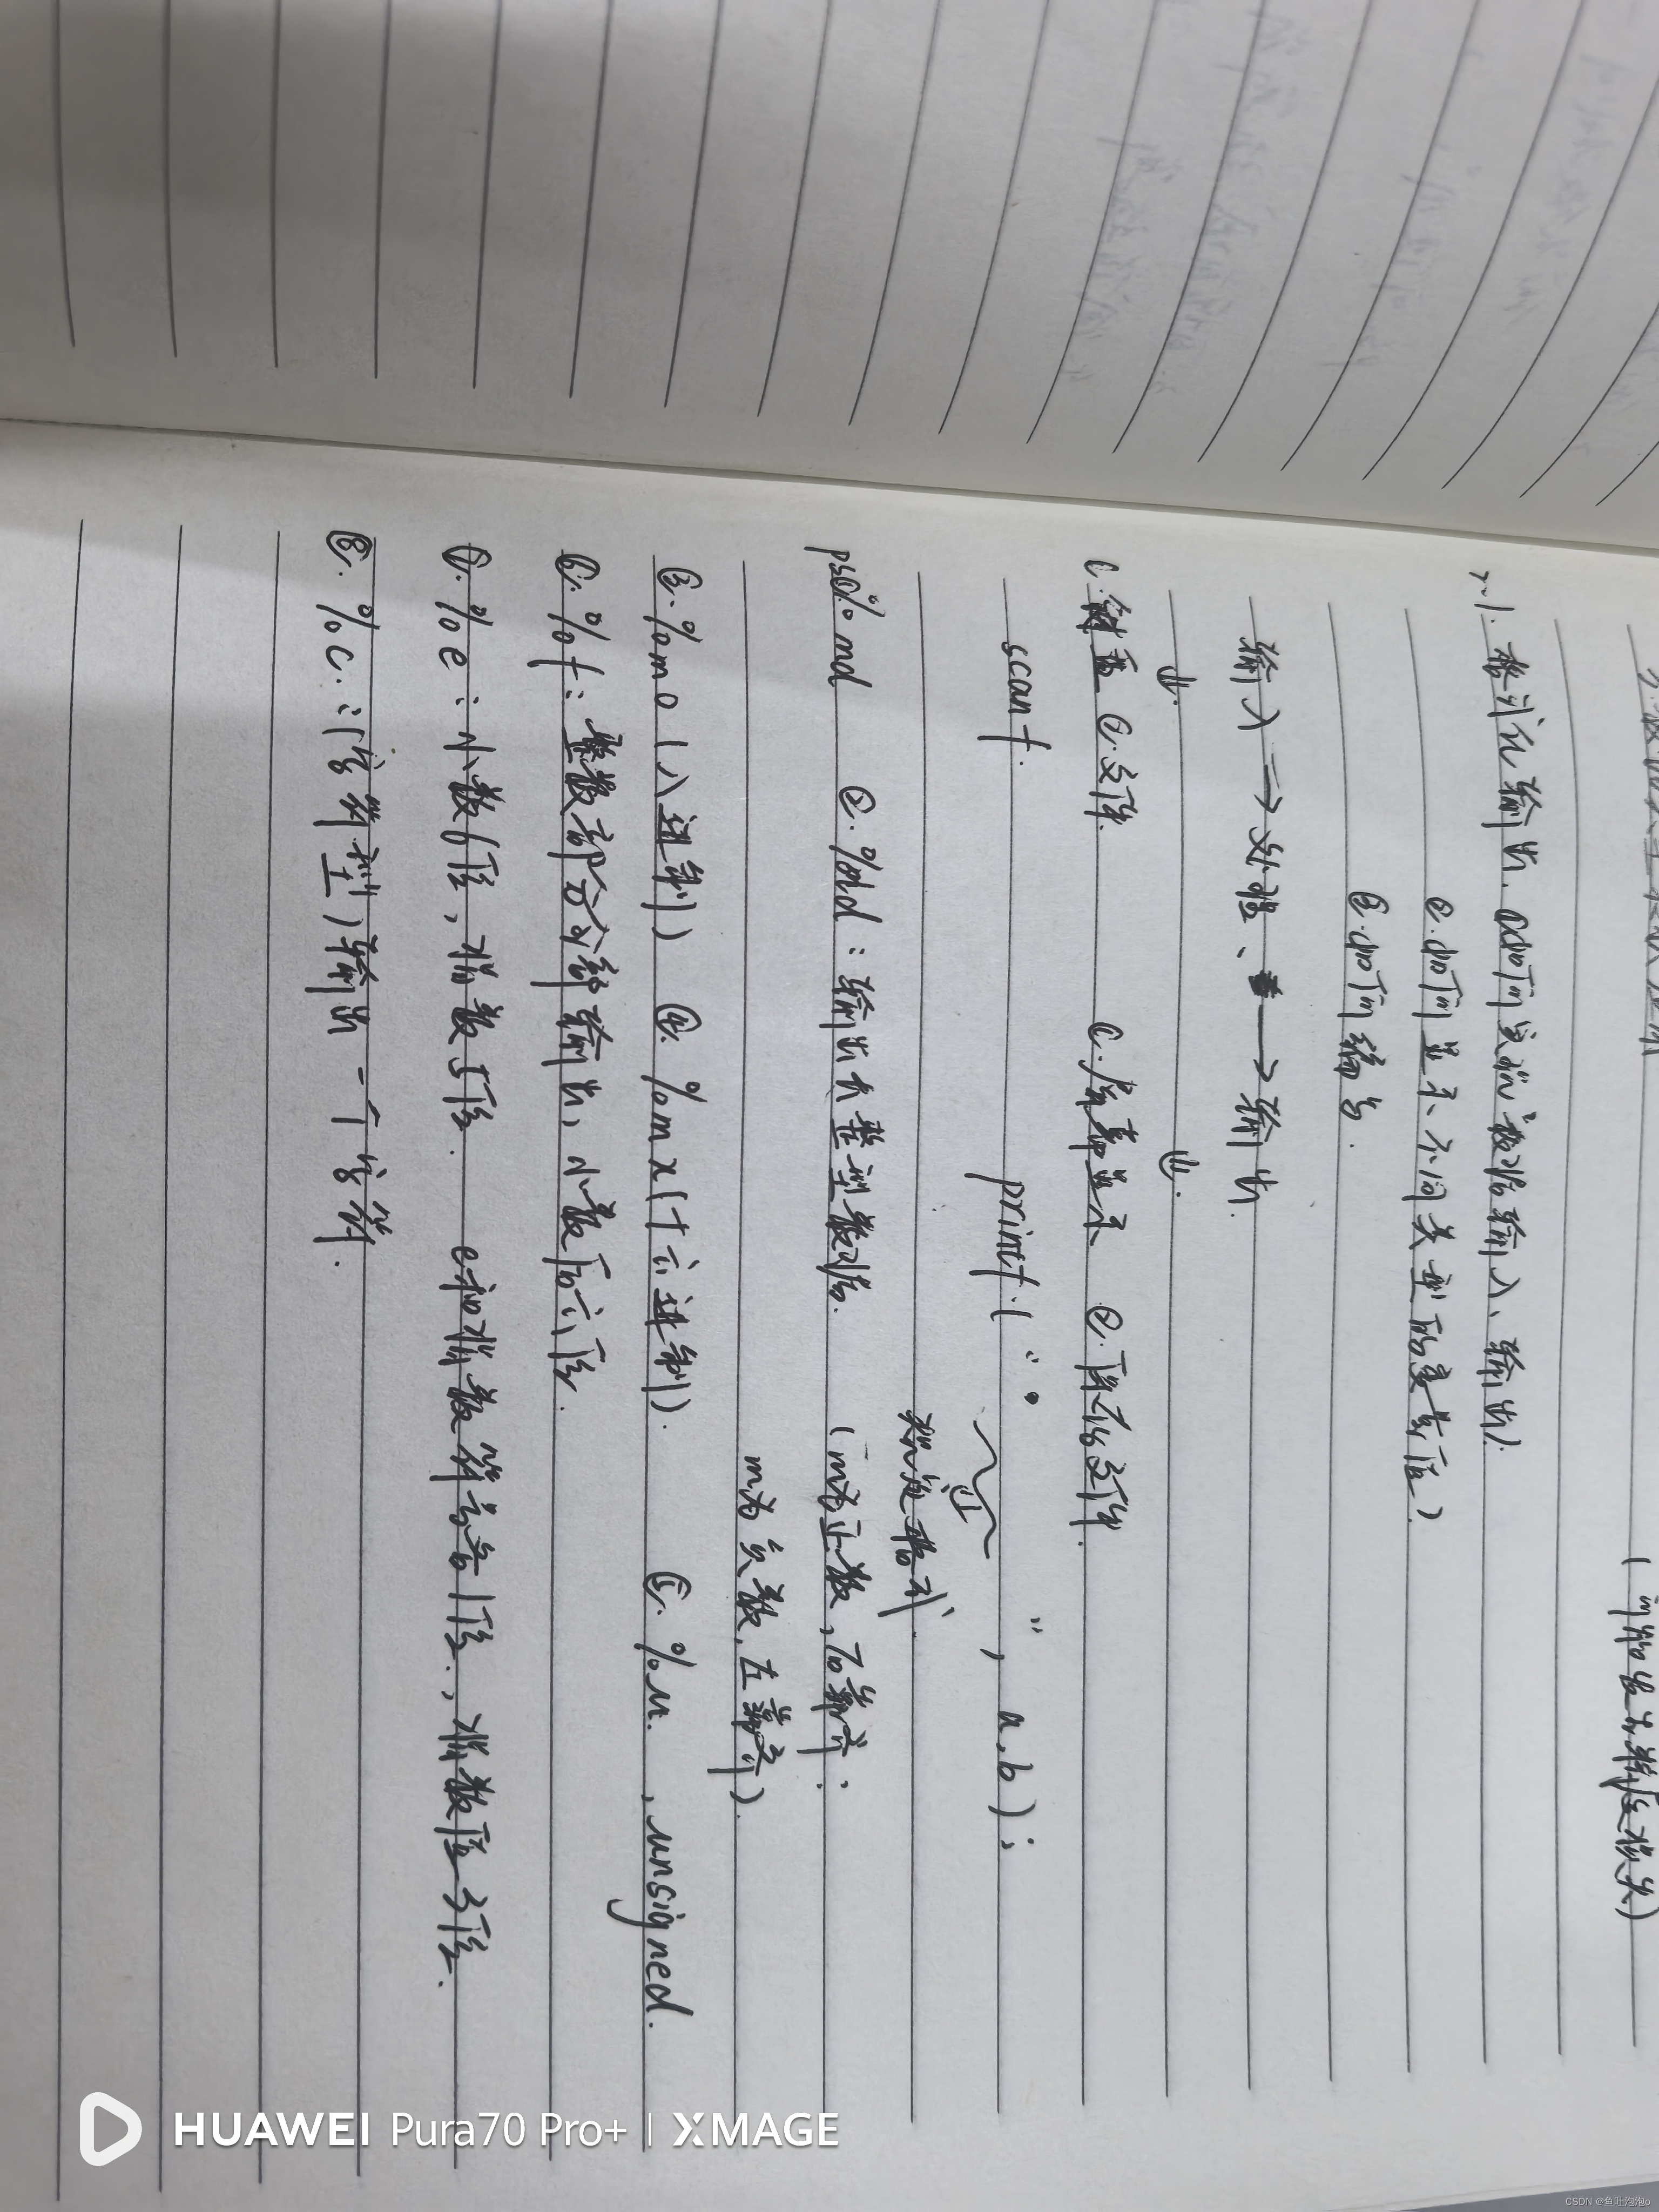 (可能发生精度损失)
2.1. 格式化输出. ①如何实现数据输入、输出).
②.如何显示不同类型的变量值).
③.如何编写.
输入 → 处理、 → 输出.
⇓. ⇓.
①.键盘 ②.文件. ①.屏幕显示 ②.可是文件.
scanf. printf.( " " , a,b);
规定格式.
①%md ②.%ld:输出长整型数据. (m为正数,右靠齐;
m为负数,左靠齐).
③.%mo(八进制) ④.%mx(十六进制). ⑤.%u. ,unsigned.
⑥.%f:整数部分全部输出,小数后六位.
⑦.%e:小数6位,指数5位. e和指数符号各1位.,指数值3位.
⑧.%c.:(字符型)输出一个字符.
HUAWEI Pura70 Pro+ | XMAGE
CSDN @鱼吐泡泡o